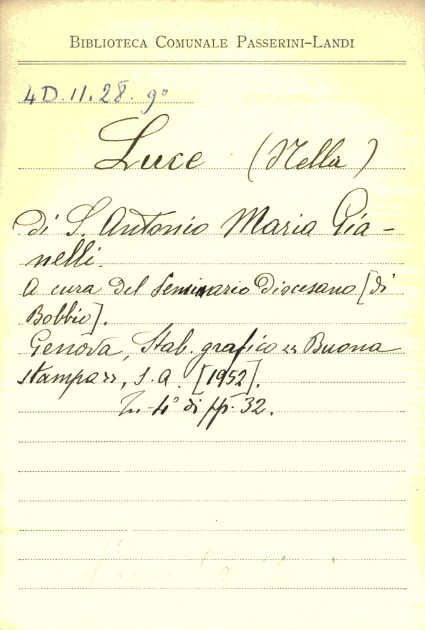 BIBLIOTECA COMUNALE PASSERINI-LANDI
4D.11.28. 9°
Luce (Nella)
di S. Antonio Maria Gia-
nelli.
A cura del Seminario Diocesano [di
Bobbio].
Genova, Stab. grafico "Buona
stampa", s.a. [1952].
In-4° di pp. 32.